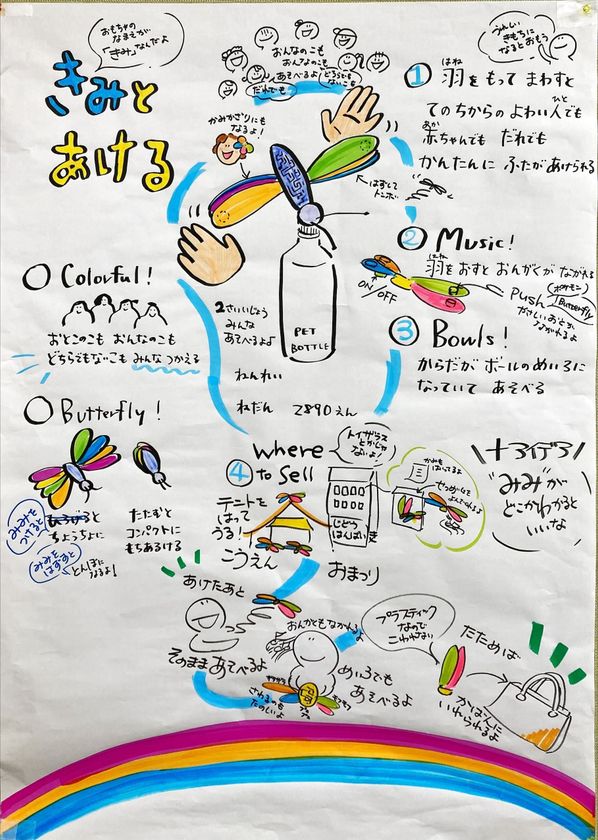 おもちゃの
なまえが
「きみ」なんだよ
きみと
あける
おんなのこも
おんなのこも
あそべるよ!どちらでも
だれでも
ないこも
うれしい
きもちに
なるとおもう
① 羽をもって まわすと
はね
てのちからの よわい人でも
ひと
赤ちゃんでも だれでも
あか
かんたんに ふたがあけられる
かみかざりにも
なるよ!
はずして
トンボ
② Music!
羽をおすと おんがくが ながれる
はね
ON/OFF
Push
ポケモン
Butterfly
やさしいおとが
ながれるよ
○ Colorful!
おとこのこも おんなのこも
どちらもないこも みんなつかえる
2さいいじょう
みんな
あそべるよ♪
PET
BOTTLE
ねんれい
ねだん 2890えん
③ Bowls!
からだが ボールのめいろに
なっていて あそべる
○ Butterfly!
みみを
つけると
ちょうちょに
みみを
はずすと
とんぼになるよ!
たたむと
コンパクトに
もちあるける
④ Where
to Sell
トイザラス
とかじゃ
ないよ!
テントを
はって
うる!
こうえん
じどう
はんばいき
おまつり
かみも
はいってるよ
せつめいして
よんでくれるよ
+アイデア
"みみ"が
どこかわかると
いいな
あけたあと
そのまま あそべるよ
おんがくもながれるよ
さわるのも
たのしいよ
めいろでも
あそべるよ
プラスティック
なので
こわれない
たためば
かばんに
いれられるよ